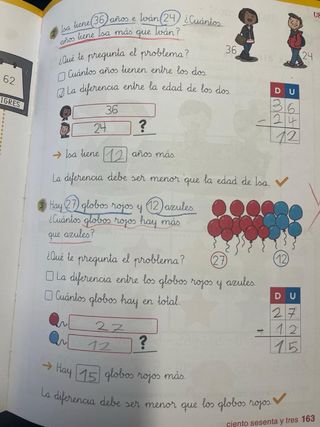 Isa tiene 36 años e Iván 24. ¿Cuántos
años tiene Isa más que Iván?
¿Qué te pregunta el problema?
Cuántos años tienen entre los dos.
La diferencia entre la edad de los dos.
36
24 ?
→ Isa tiene 12 años más.
La diferencia debe ser menor que la edad de Isa.
36
24
D U
36
- 24
12
62
TIGRES
Hay 27 globos rojos y 12 azules.
¿Cuántos globos rojos hay más
que azules?
¿Qué te pregunta el problema?
La diferencia entre los globos rojos y azules.
Cuántos globos hay en total.
27
12 ?
→ Hay 15 globos rojos más.
La diferencia debe ser menor que los globos rojos.
27
12
D U
27
- 12
15
ciento sesenta y tres 163